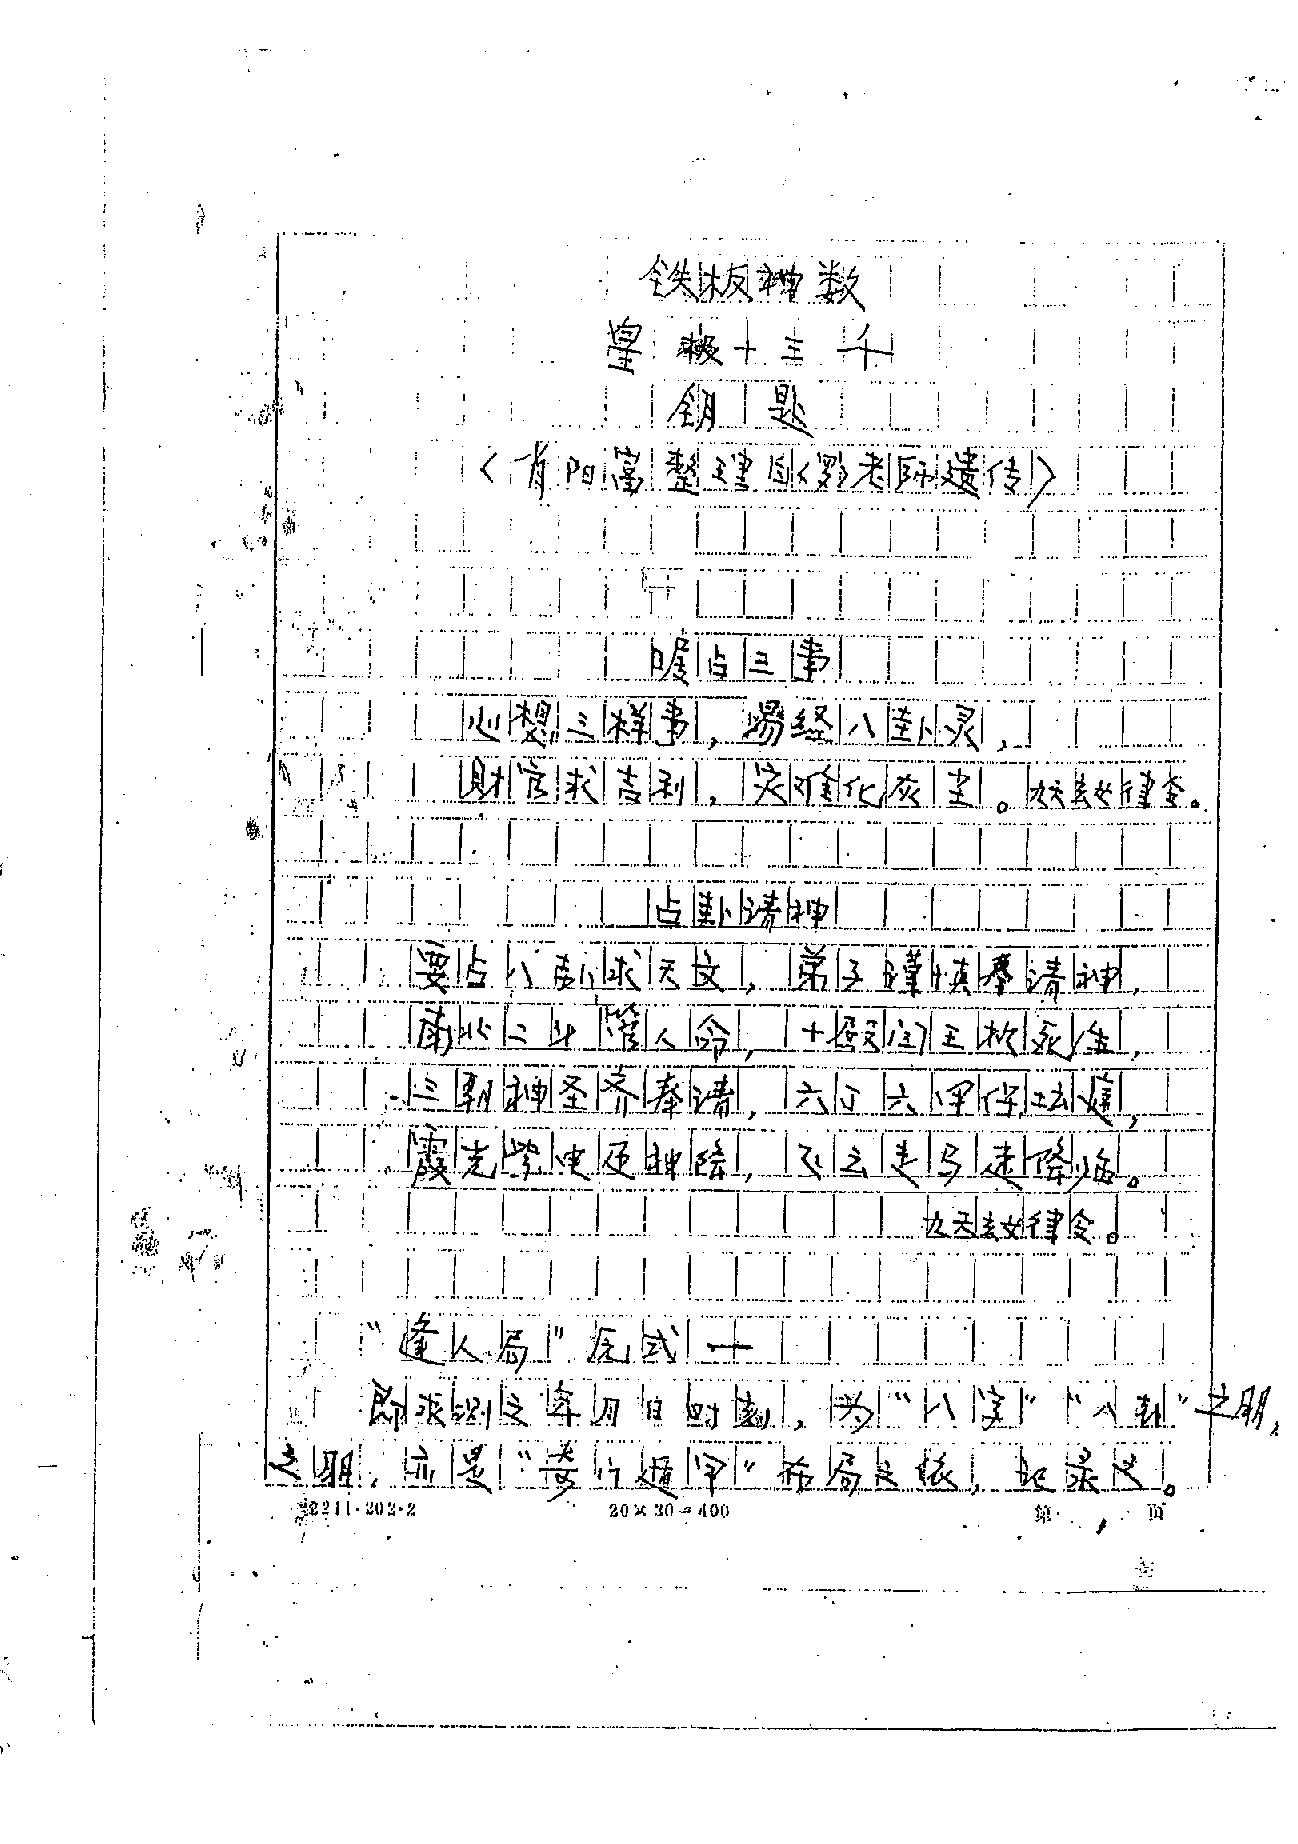 铁板神数
皇极十三千
钥匙
〈肖阳嵩整理自〈郭〉老师遗传〉
占三事
心想三样事，易经八卦灵，
财官求吉利，灾难化灰尘。九天玄女律令。
占卦请神
要占八卦求天文，弟子谨慎奉请神，
南北二斗管人命，十殿门王救死生，
三朝神圣齐奉请，六丁六甲保坛庭，
霞光紫电迎神降，飞云走马速降临。
九天玄女律令。
“逢人局”范式一
即求测之年月日时刻，为“八字”“八卦”之用，
之用，亦是“奇门遁甲”布局之依，记录之。
22211·202·2
20×20=400
第 页